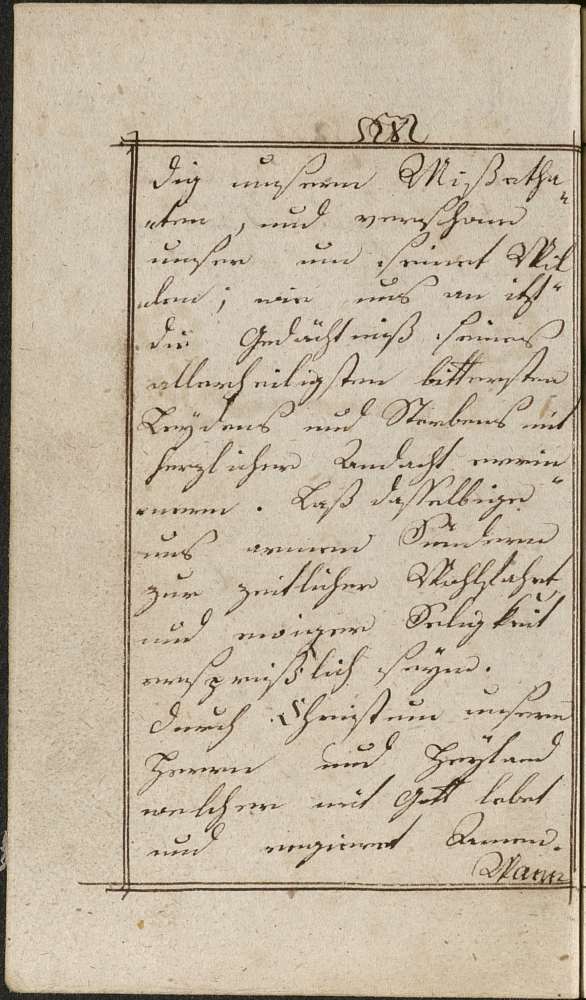 dig unsern Mißetha„
„ten, und verschone
unser um seinet Wil
„len; wir uns an itzt"
die Gedächtniß seines
allerheiligsten bittersten
Leydens und Sterbens mit
herzlicher Andacht erin„
„nern. Laß dasselbige
uns armen Sündern
zur zeitlicher Wohlfahrt,
und ewiger Seligkeit
ersprießlich seyn.
Durch Christum unsern
Herrn und Heyland
welcher mit Gott lebet
und regieret Amen.
Wann